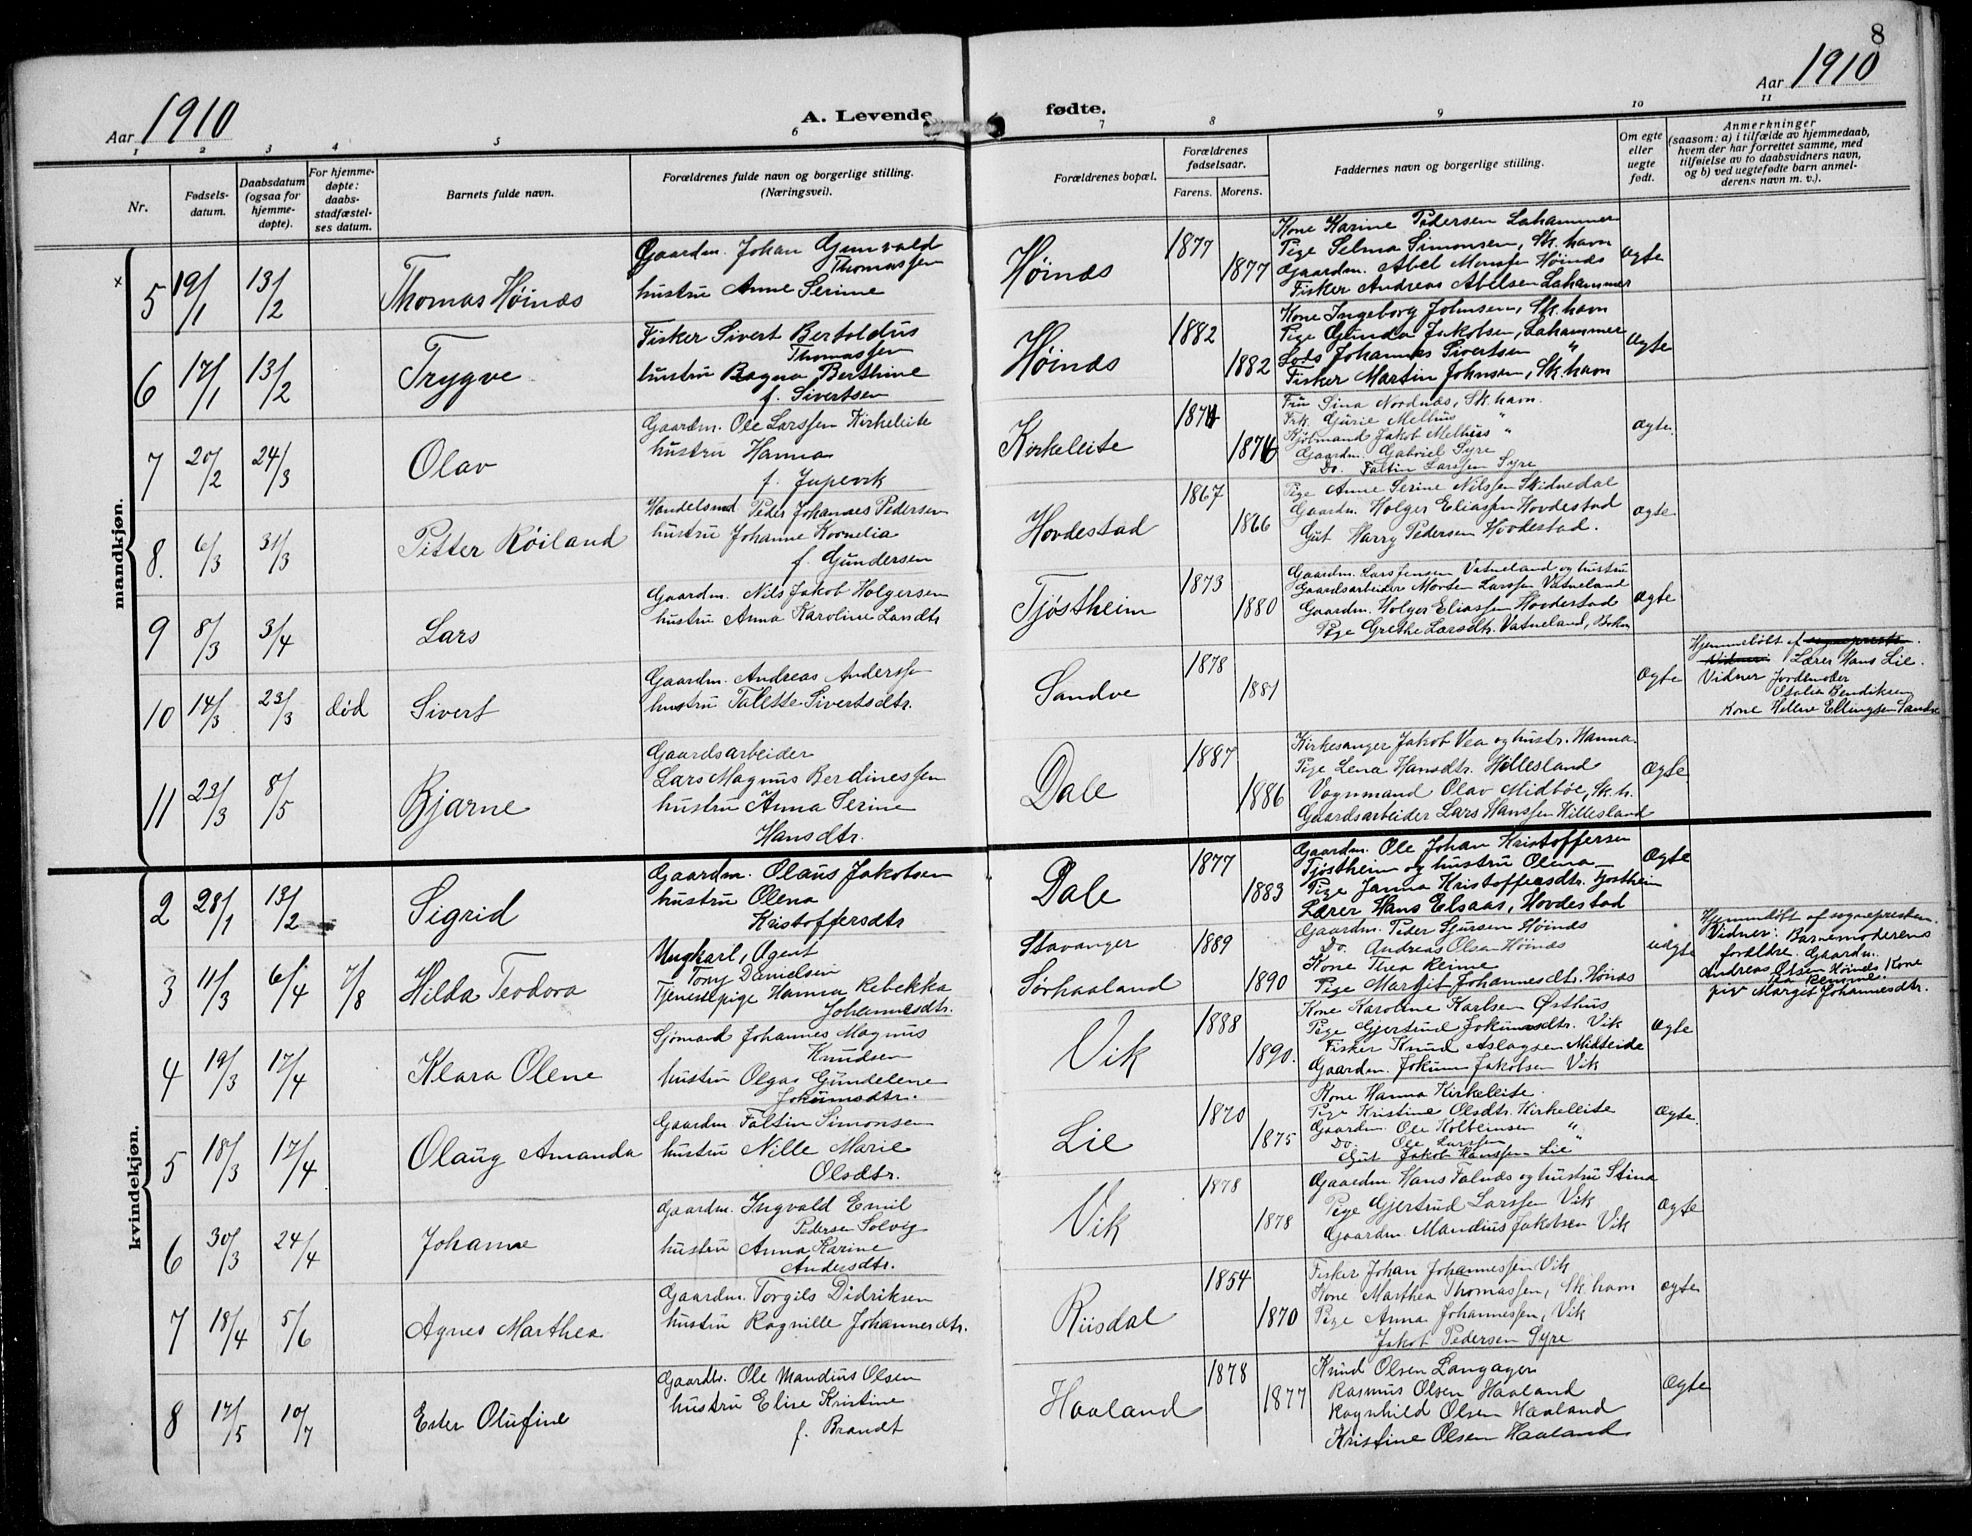 8
Aar 1910
A. Levende
fødte.
Aar 1910
1 2 3 4 5 6 7 8 9 10 11
Nr.
Fødsels-
datum.
Daabsdatum
(ogsaa for
hjemme-
døpte).
For hjemme-
døpte:
daabs-
stadfæstel-
ses datum.
Barnets fulde navn.
Forældrenes fulde navn og borgerlige stilling.
(Næringsvei).
Forældrenes bopæl.
Forældrenes
fødselsaar.
Farens. Morens.
Faddernes navn og borgerlige stilling.
Om egte
eller
uegte
født.
Anmerkninger
(saasom: a) i tilfælde av hjemmedaab,
hvem der har forrettet samme, med
tilføielse av to daabsvidners navn,
og b) ved uegtefødte barn anmel-
derens navn m. v.).
mandkjøn.
×
5 19/1 13/2 Thomas Høinæs
Gaardm. Johan Gunvald
Thomassen
hustru Anne Serine
Høinæs 1877 1877
Kone Karine Pedersen Lahammer
Pige Selma Simonsen, Sk.havn
Gaardm. Abel Monsen Høinæs
Fisker Andreas Abelsen Lahammer
Ægte
6 17/1 13/2 Trygve
Fisker Sivert Bertoldus
Thomassen
hustru Ragna Berthine
f. Sivertsen
Høinæs 1882 1882
Kone Ingeborg Johnsen, Sk.havn
Pige Gunda Jakobsen, Lahammer
Lods Johannes Sivertsen "
Fisker Martin Johnsen, Sk.havn
Ægte
7 20/2 24/3 Olav
Gaardm. Ole Larssen Kirkeleite
hustru Hanna
f. Jupevik
Kirkeleite 1874 1876
Fru Sina Nordnæs, Sk.havn.
Frk. Gurie Melhus "
Kjøbmand Jakob Melhus "
Gaardm. Gabriel Syre
Do. Faltin Larssen Syre
Ægte.
8. 6/3 31/3 Pitter Røiland
Handelsmd Peder Johannes Pedersen
hustru Johanne Kornelia
f. Gundersen
Hovdestad 1867 1866
Pige Anne Serine Nilssen Skidnedal
Gaardm. Holger Eliassen Hovdestad
Gut Harry Pedersen Hovdestad.
Ægte
9 8/3 3/4 Lars
Gaardm. Nils Jakob Holgersen
hustru Anna Karoline Landtr
Tjøstheim 1873 1880
Gaardm. Lars Jensen Vatneland og hustru
Gaardsarbeider Morten Larssen Vatneland
Gaardm. Holger Eliassen Hovdestad
Pige Grethe Larsdtr. Vatneland, Bokn
Ægte
10 14/3 23/3 død Sivert
Gaardm. Andreas Anderssen
hustru Talette Sivertsdtr.
Sandve 1878 1881
Ægte
Hjemmedøbt af sogneprests.
Vidner: Lærer Hans Lie.
Vidner Jordmoder
Italia Bendiksen
Kone Helene Ellingsen Sandve
11 23/3 8/5 Bjarne
Gaardsarbeider
Lars Magnus Berdinessen
hustru Anna Serine
Hansdtr.
Dale 1887 1886
Kirkesanger Jakob Vea og hustr. Hanna.
Pige Lena Hansdtr. Hillesland
Vognmand Olav Midbøe, Sk.h.
Gaardsarbeider Lars Hanssen Hillesland
Ægte
kvindekjøn.
2 28/1 13/2 Sigrid
Gaardm. Olaus Jakobsen
hustru Olena
Kristoffersdtr
Dale 1877 1883
Gaardm. Ole Johan Kristoffersen
Tjøstheim og hustru Olena
Pige Janna Kristoffersdtr. Tjostheim
Lærer Hans Elsaas, Hovdestad
Ægte
3 11/3 6/4 7/8 Hilda Teodora
Ungkarl, Agent
Tony Danielsen
Tjenestepige Hanna Rebekka
Johannesdtr.
Stavanger
Sørhaaland 1889 1890
Gaardm. Peder Sjursen Høinæs
Do. Andreas Olsen Høinæs
Kone Thea Reime
Pige Margit Johannesdtr. Høinæs
uægte
Hjemmedøbt af sognepresten.
Vidner: Barnemoderens
forældre. Gaardm.
Andreas Olsen Høinæs Kone
Tea Reime.
pige Margit Johannesdtr.
4 19/3 17/4 Klara Olene
Sjømand Johannes Magnus
Knudsen
hustru Olgas Gundelene
Jokumsdtr.
Vik 1888 1890.
Kone Karoline Karlsen Østhus
Pige Gjertrud Jokumsdtr. Vik
Fisker Knud Aslagsen Midteide
Gaardm. Jokum Jakobsen Vik
Ægte
5 18/3 17/4 Olaug Amanda
Gaardm. Faltin Simonsen
hustru Nille Marie
Olsdtr.
Lie 1870 1875
Kone Hanna Kirkeleite.
Pige Kristine Olsdtr. Kirkeleite
Gaardm. Ole Kolbeinsen "
Do. Ole Larssen "
Gut Jakob Hanssen Lie
Ægte.
6 30/3 24/4 Johanne
Gaardm. Ingvald Emil
Pedersen Solvig
hustru Anna Karine
Andersdtr.
Vik 1878 1878
Gaardm. Hans Falnæs og hustru Stina
Pige Gjertrud Larssen Vik
Gaardm. Mandius Jakobsen Vik
Ægte
7 18/4 5/6 Agnes Marthea
Gaardm. Torgils Didriksen
hustru Ragnille Johannesdtr.
Riisdal 1854 1870
Fisker Johan Johannessen Vik
Kone Marthea Thomassen, Sk.havn
Pige Anna Johannessen, Vik
Jakob Pedersen Syre
Ægte
8 17/5 10/7 Ester Olufine
Gaardbr. Ole Mandius Olsen
hustru Elise Kristine
f. Brandt
Haaland 1878 1877
Knud Olsen Langager
Rasmus Olsen Haaland
Ragnhild Olsen Haaland
Kristine Olsen Haaland
Ægte